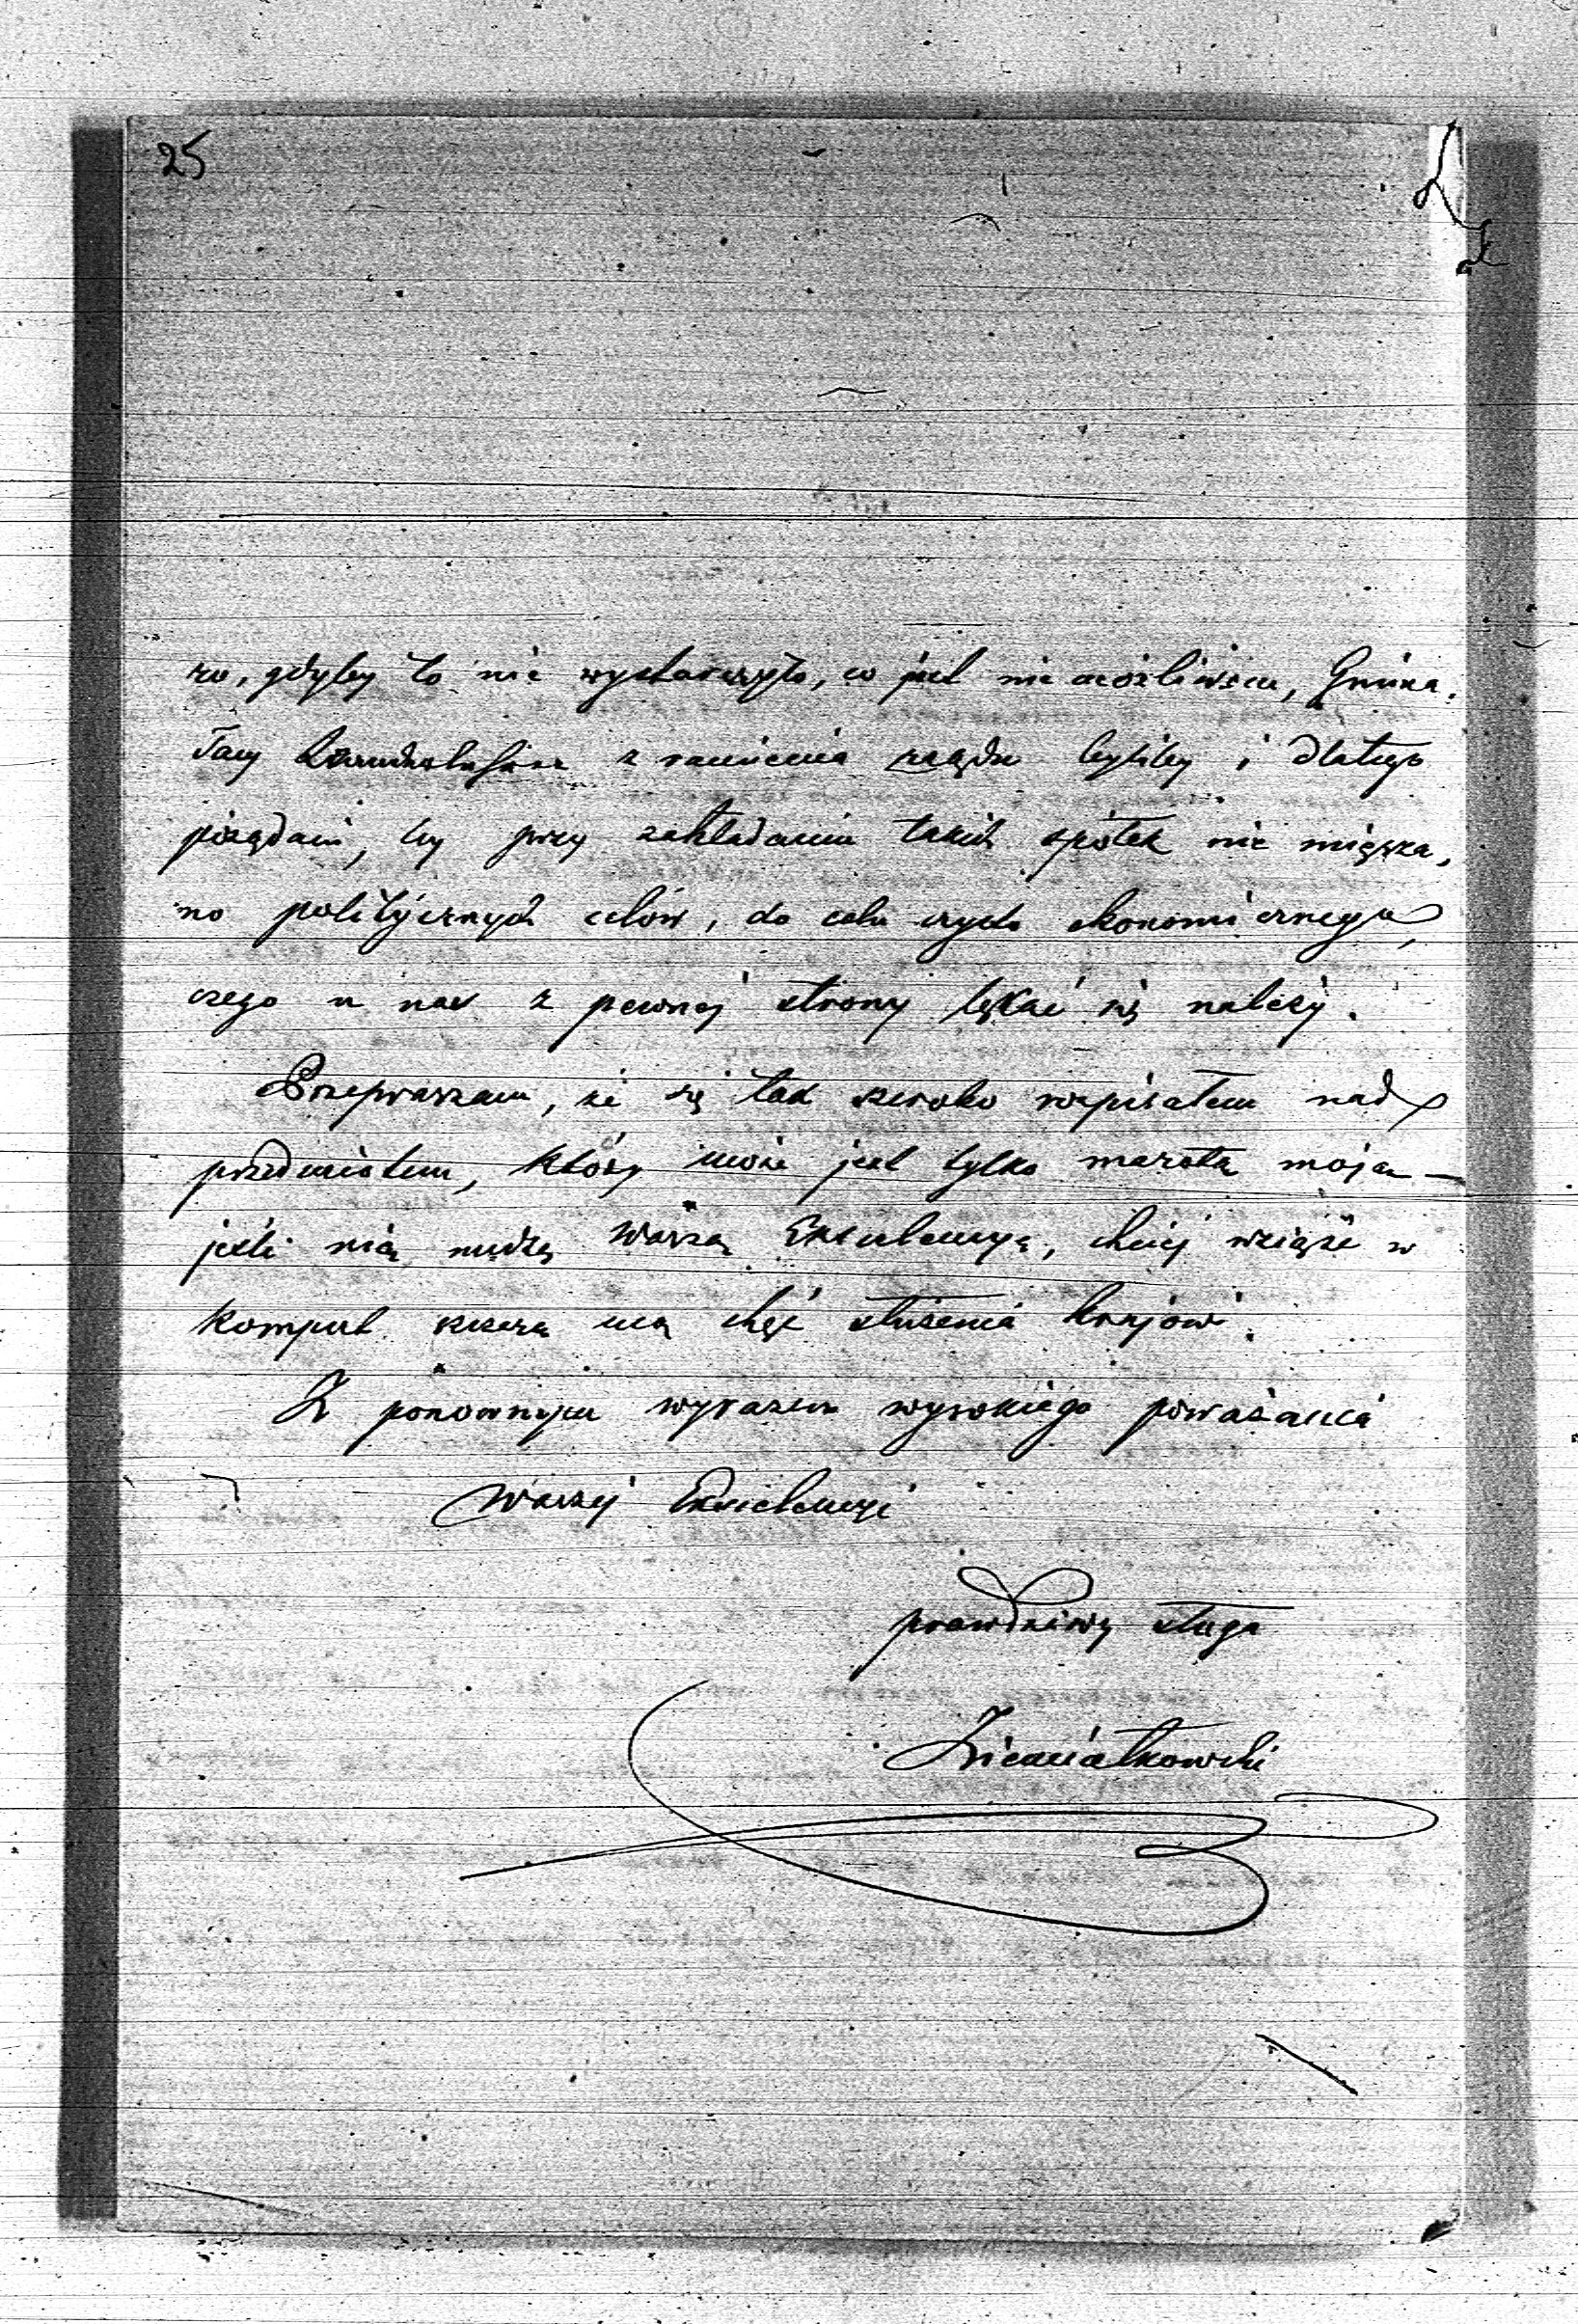 25
ru, gdyby to nie wystarczyło, co jest nie możliwem,
z ramienia rządu byliby i dlatego
pożądani, by przy zakładaniu takich spółek nie mięsza,
no politycznych celów, do celu czysto ekonomicznego,
czego u nas z pewnej strony lękać się należy.
Przepraszam, że się tak szeroko rozpisałem nad
przedmiotem, który może jest tylko marotą moja —
jeśli nią nudzę Waszą Excelencyę, chciej wziąść w
komput szczerą mą chęć służenia krajowi.
Z ponownym wyrazem wysokiego poważania
Waszej Excelencyi
prawdziwy sługa
Ziemiałkowski